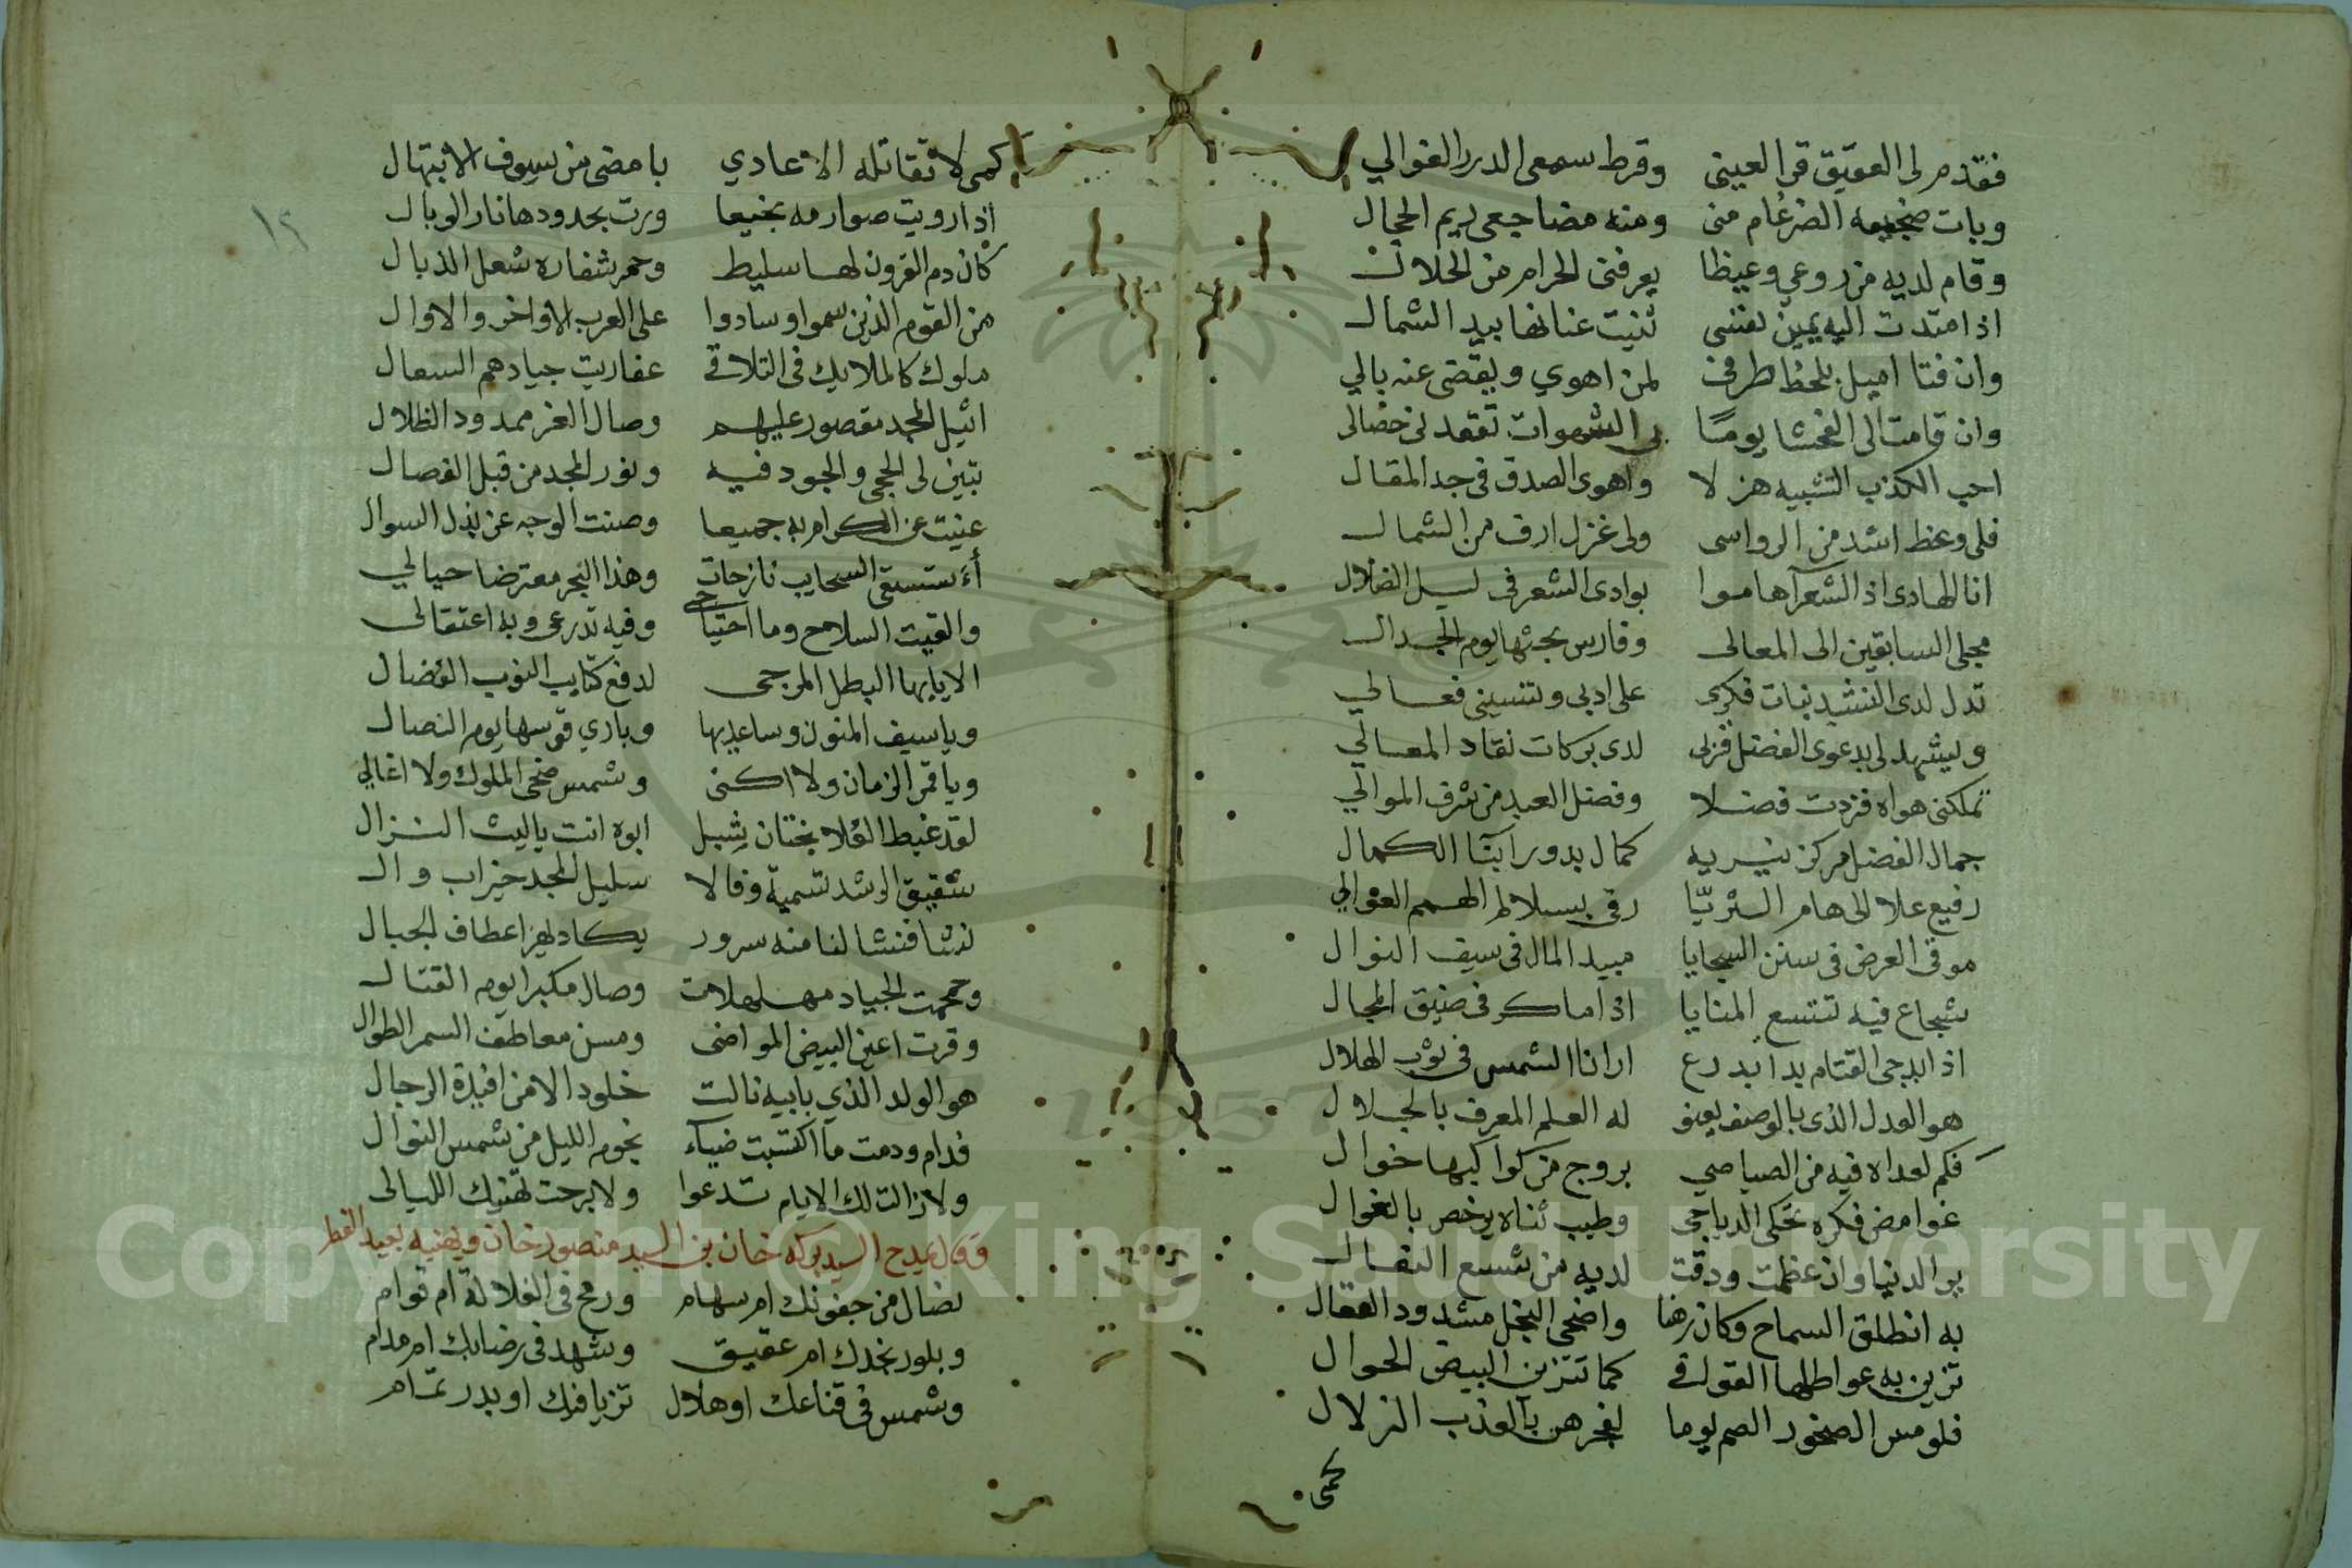 فقدم لى العقيق قرا لعينى وقرط سمعى الدرر الغوالي
وبات ضجيعه الضرغام منى ومنه مضاجعى ريم الحجال
وقام لديه من روعي وعيظا يعرفنى الحرام من الحلال
اذا متدت اليه يمين نفسى ثنيت عنانها بيد الشمال
وان فتا اميل بلحظ طرفى لمن اهوي ويقضى عنه بالي
وان قامت الى الفحشا يومًا بى الشهوات تقعد لى خصالى
احب الكذب التشبيه هزلا واهوى الصدق فى جد المقال
فلى وعظ اشد من الرواسى ولى غزل ارق من الشمال
انا الهادى اذ الشعرآ هاموا بوادى الشعر فى ليل الضلال
مجلى السابقين الى المعالى وفارس بحثها يوم الجدال
تدل لدى النشيد بنات فكرى على ادبى وتنسينى فعالي
وليشهد لى بدعوى الفضل قربى لدى بركات نقاد المعالي
تملكنى هواه فزدت فضلا وفضل العبد من شرف الموالي
جمال الفضل مركز نيريه كمال بدور آبآ الكمال
رفيع علا الى هام الثريّا رقى بسلالم الهمم العوالي
موقى العرض فى سنن السجايا مبيد المال فى سيف النوال
شجاع فيه تتسع المنايا اذا ما كر فى ضيق المجال
اذا بدجى القتام بدا بدرع ارانا الشمس فى ثوب الهلال
هو العدل الذى بالوصف يعنو له العلم المعرف بالجلال
فكم لعداه فيه من الصياصي بروج من كواكبها خوال
غوامض فكره تحكى الدياجي وطيب ثناه يرخص بالغوال
يرا لدنيا وان عظمت ودقت لديه من شسع النعال
به انطلق السماح وكان رهنا واضحى البخل مشدود العقال
تزين به عواطلها القوافي كما تتزين البيض الحوال
فلو مس الصخور الصم يوما لفجرهن بالعذب الزلال
كمى
١٢
كمى لا تقاتله الاعادي بامضى من سيوف الابتهال
اذا رويت صوارمه بخيعا ورت بحدودها نار الوبال
كأن دم القرون لها سليط وحمر شفاره شعل الذبال
من القوم الذين سموا وسادوا على العرب الاواخر والاوال
ملوك كالملايك فى التلاقي عفاريت جيادهم السعال
اثيل المجد مقصور عليهم وصال الفخر ممدود الظلال
تبين لى الحجى والجود فيه ونور المجد من قبل الفصال
غنيت عن الكرام به جميعا وصنت الوجه عن بذل السوال
أأستسقى السحايب نازحات وهذا البحر معترضا حيالي
والقيت السلاح وما احتياجى وفيه تدرعى وبه اعتقالى
الا يايها البطل المرجى لدفع كتايب النوب العضال
ويا سيف المنون وساعديها وباري قوسها يوم النضال
ويا قمر الزمان ولا اكنى وشمس ضحى الملوك ولا اغالي
لقد غبط العلا بختان شبل ابوه انت يا ليث النزال
شقيق الرشد تسمية وفالا سليل المجد خير اب وال
نشا فنشا لنا منه سرور يكاد يهز اعطاف الجبال
وحمحمت الجياد مهلهلات وصال مكبرا يوم القتال
وقرت اعين البيض المواضى ومسن معاطف السمر الطوال
هو الولد الذي بابيه نالت خلود الامن افيدة الرجال
فدام ودمت ما اكتسبت ضيآء نجوم الليل من شمس النوال
ولا زالت لك الايام تدعوا ولا برحت تهنيك الليالى
وقال يمدح السيد بركه خان بن السيد منصور خان ويهنيه بعيد الفطر
نضال من جفونك ام سهام ورمح فى الغلالة ام قوام
وبلور بخدك ام عقيق وشهد فى رضابك ام مدام
وشمس فى قناعك او هلال تزيا فيك او بدر تمام